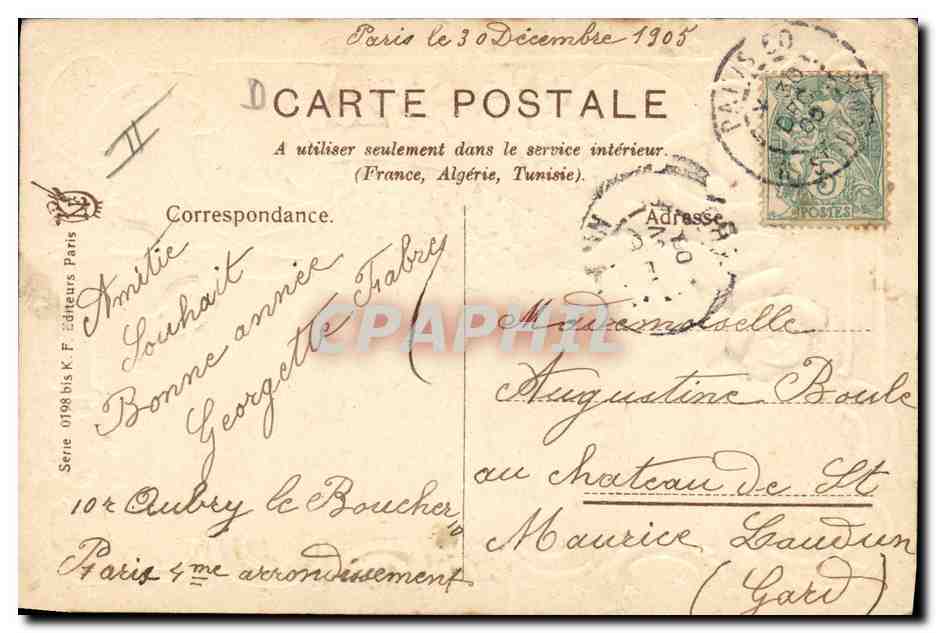 Paris le 30 Décembre 1905
D
CARTE POSTALE
A utiliser seulement dans le service intérieur.
(France, Algérie, Tunisie).
II
Correspondance.
Adresse
PARIS 60
5
POSTES
Amitié
Souhait
Bonne année
Georgette Fabre
10 r Aubry le Boucher
10
Paris 4me arrondissement
Mademoiselle
Augustine Boule
au chateau de St
Maurice Laudun
(Gard)
Série 0198 bis K. F. Editeurs Paris
CPAPHIL